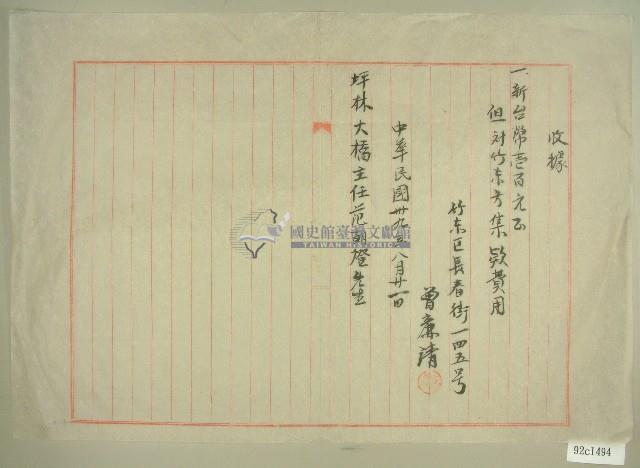 收據
一、新台幣壹百元正
但対竹東方集款費用
竹東区長春街一四五号
曾廉清
中華民國卅九年八月廿一日
坪林大橋主任范朝燈先生
國史館臺灣文獻館
TAIWAN HISTORICA
92cI494